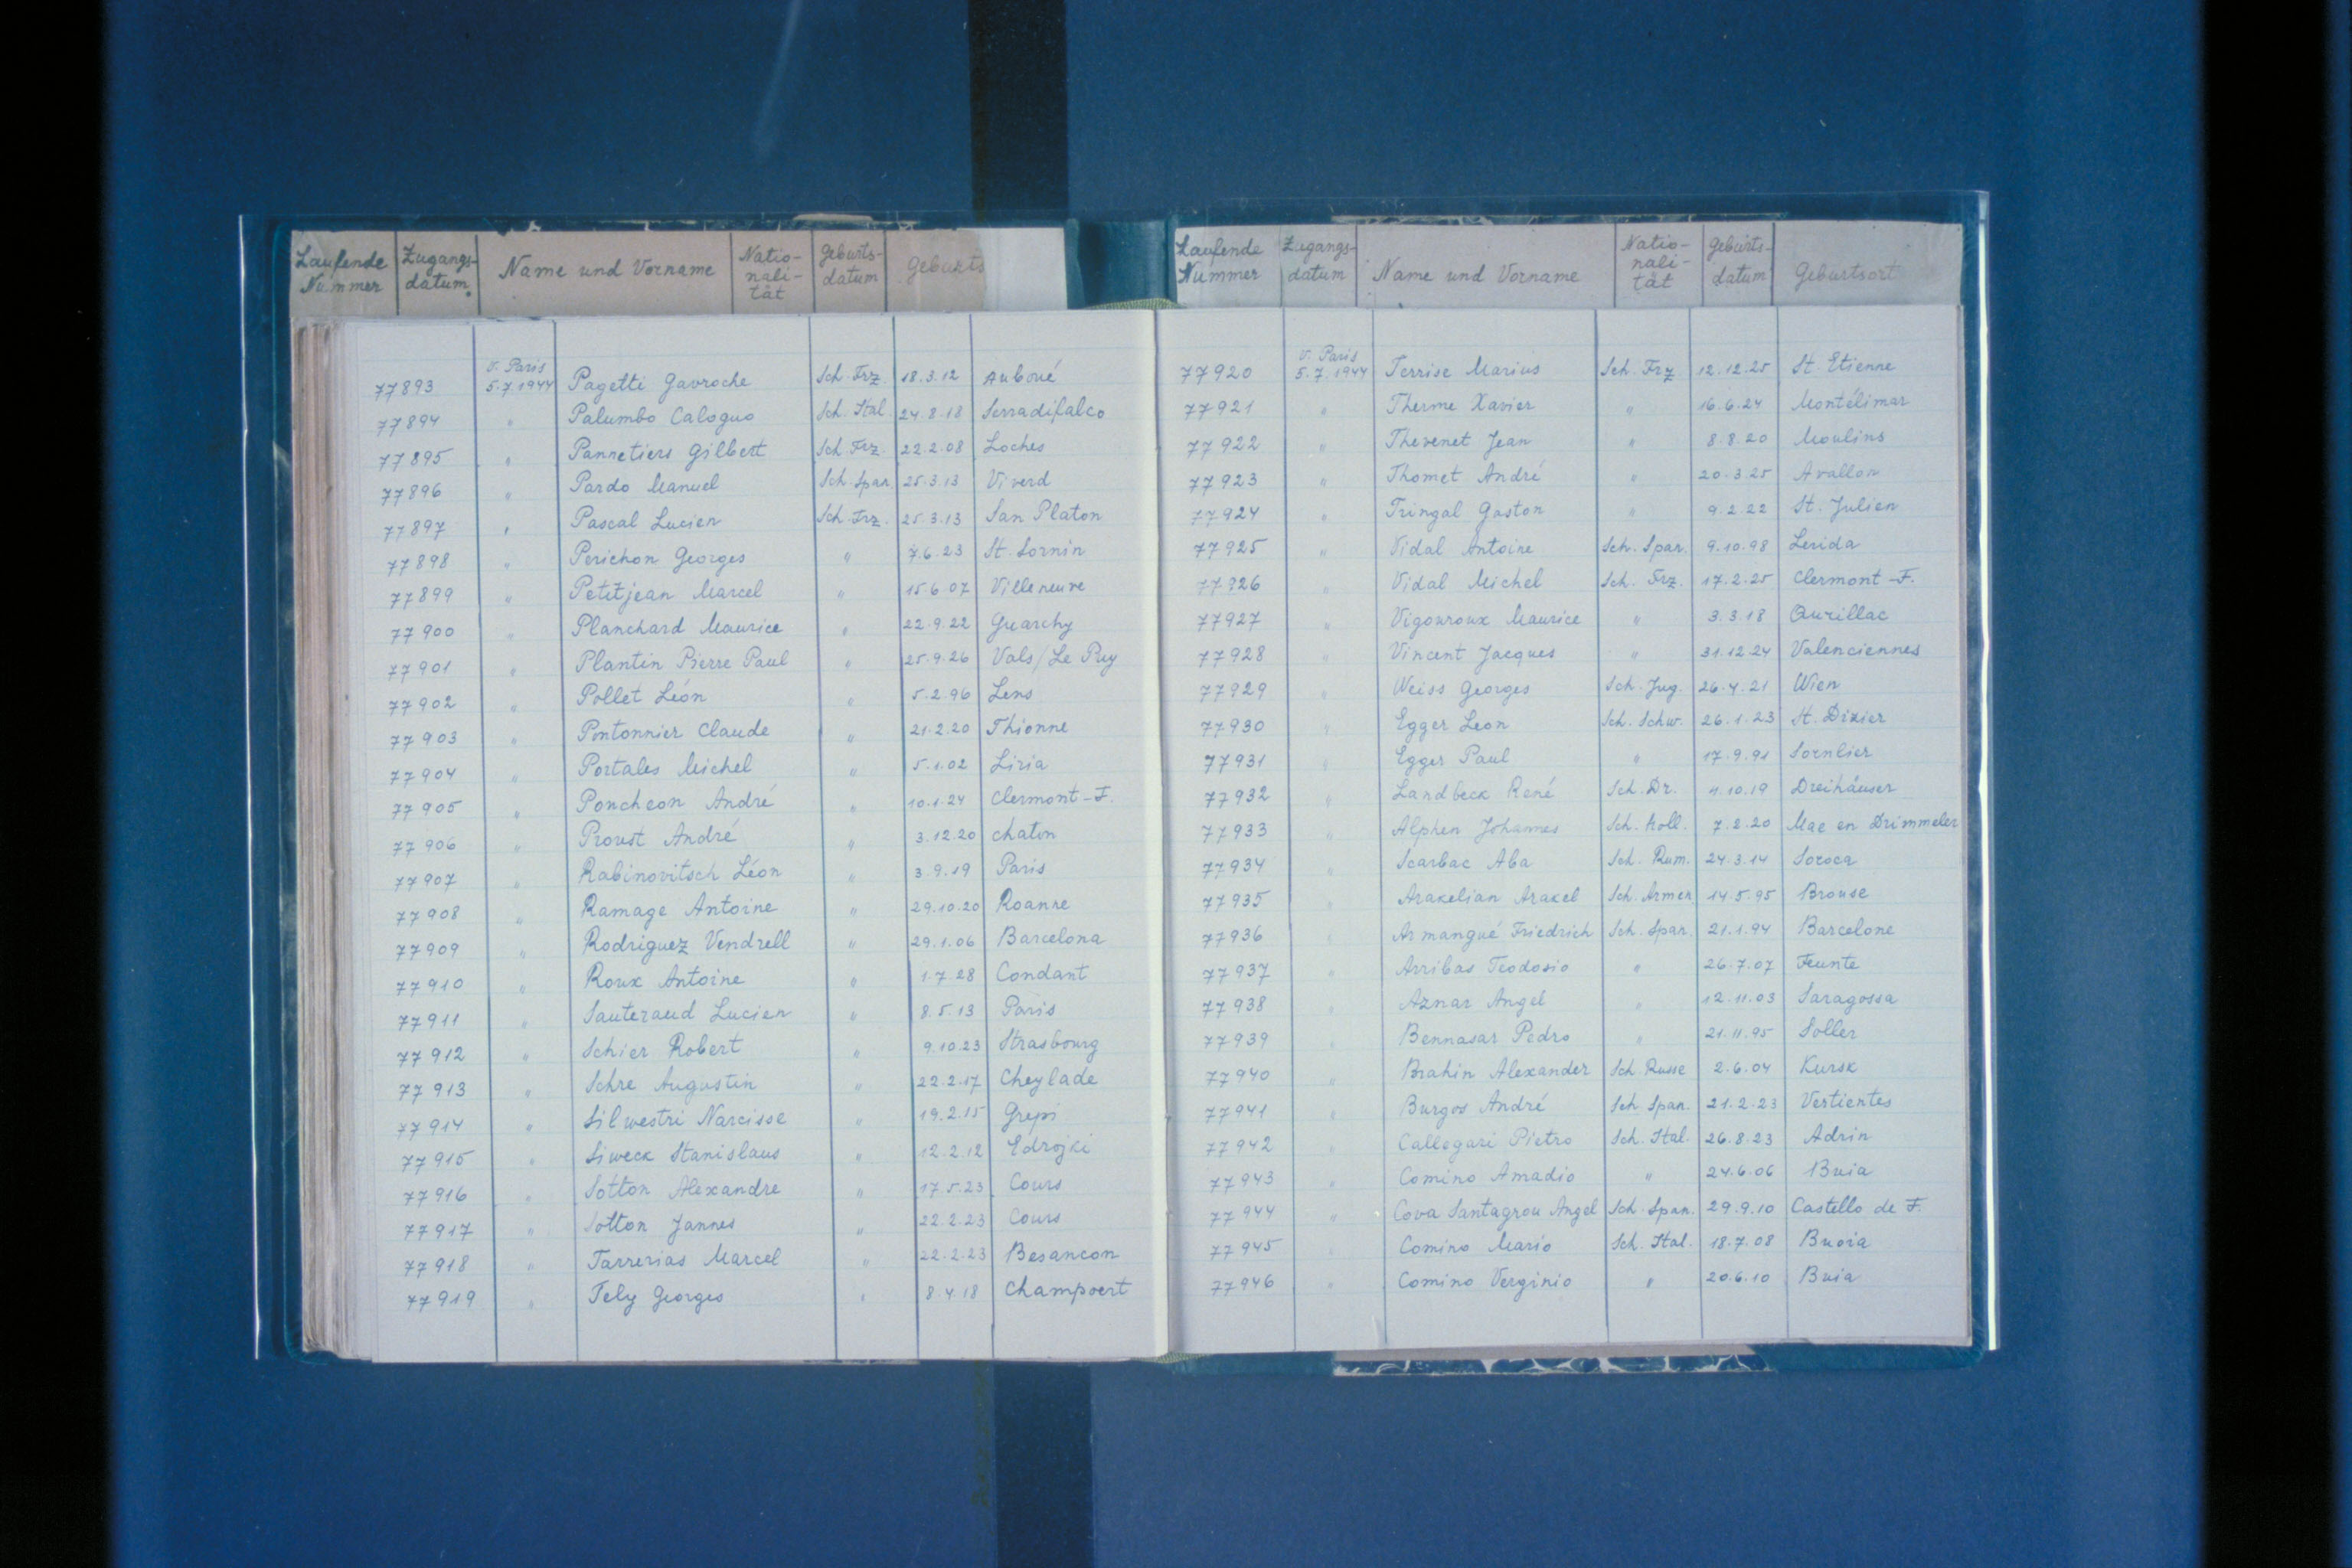 Laufende Nummer Zugangs-datum Name und Vorname Natio-nali-tät Geburts-datum Geburts
V. Paris
77893 5.7.1944 Pagetti Gavroche Sch. Frz. 18.3.12 Auboué
77894 " Palumbo Caloguo Sch. Ital. 24.8.18 Serradifalco
77895 " Pannetiers Gilbert Sch Frz. 22.2.08 Loches
77896 " Pardo Manuel Sch. Span. 25.3.13 Viverd
77897 " Pascal Lucien Sch. Frz. 25.3.13 San Platon
77898 " Perichon Georges " 7.6.23 St. Sornin
77899 " Petitjean Marcel " 15.6.07 Villeneuve
77900 " Planchard Maurice " 22.9.22 Guarchy
77901 " Plantin Pierre Paul " 25.9.26 Vals/Le Puy
77902 " Pollet Léon " 5.2.96 Lens
77903 " Pontonnier Claude " 21.2.20 Thionne
77904 " Portales Michel " 5.1.02 Liria
77905 " Poncheon André " 10.1.24 Clermont-F.
77906 " Proust André " 3.12.20 Chaton
77907 " Rabinovitsch Léon " 3.9.19 Paris
77908 " Ramage Antoine " 29.10.20 Roanne
77909 " Rodriguez Vendrell " 29.1.06 Barcelona
77910 " Roux Antoine " 1.7.28 Condant
77911 " Sauteraud Lucien " 8.5.13 Paris
77912 " Schier Robert " 9.10.23 Strasbourg
77913 " Schre Augustin " 22.2.17 Cheylade
77914 " Silwestri Narcisse " 19.2.15 Grepi
77915 " Siweck Stanislaus " 12.2.12 Edrojki
77916 " Sotton Alexandre " 17.5.23 Cours
77917 " Sotton Jannes " 22.2.23 Cours
77918 " Tarrerias Marcel " 22.2.23 Besancon
77919 " Tely Georges " 8.4.18 Champvert
Laufende Nummer Zugangs-datum Name und Vorname Natio-nali-tät Geburts-datum Geburtsort
V. Paris
77920 5.7.1944 Terrise Marius Sch. Frz. 12.12.25 St. Etienne
77921 " Therme Xavier " 16.6.24 Montélimar
77922 " Thevenet Jean " 8.8.20 Moulins
77923 " Thomet André " 20.3.25 Avallon
77924 " Tringal Gaston " 9.2.22 St. Julien
77925 " Vidal Antoine Sch. Span. 9.10.98 Lerida
77926 " Vidal Michel Sch. Frz. 17.2.25 Clermont-F.
77927 " Vigouroux Maurice " 3.3.18 Aurillac
77928 " Vincent Jacques " 31.12.24 Valenciennes
77929 " Weiss Georges Sch. Jug. 26.4.21 Wien
77930 " Egger Leon Sch. Schw. 26.1.23 St. Dizier
77931 " Egger Paul " 17.9.91 Sornlier
77932 " Landbeck René Sch. Dr. 4.10.19 Dreihäuser
77933 " Alphen Johannes Sch. Holl. 7.2.20 Mae en Drimmeler
77934 " Scarbac Aba Sch. Rum. 24.3.14 Soroca
77935 " Arakelian Arakel Sch. Armen 14.5.95 Brouse
77936 " Armangué Friedrich Sch. Span. 21.1.94 Barcelone
77937 " Arribas Teodosio " 26.7.07 Feunte
77938 " Aznar Angel " 12.11.03 Saragossa
77939 " Bennasar Pedro " 21.11.95 Soller
77940 " Brahin Alexander Sch. Russe 2.6.04 Kursk
77941 " Burgos André Sch Span. 21.2.23 Vertientes
77942 " Callegari Pietro Sch. Ital. 26.8.23 Adrin
77943 " Comino Amadio " 24.6.06 Buia
77944 " Cova Santagrou Angel Sch. Span. 29.9.10 Castello de F.
77945 " Comino Mario Sch. Ital. 18.7.08 Buoia
77946 " Comino Verginio " 20.6.10 Buia